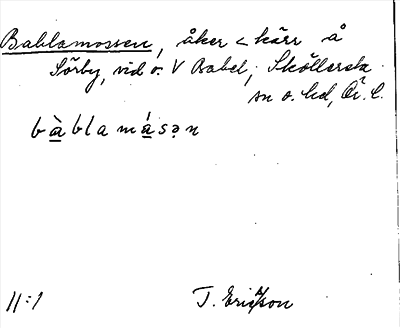 Bablamossen, åker < kärr å
Sörby, vid o. V Babel, Sköllersta
sn o. hd, Ör. l.
bàblamásən
11:1
T. Ericsson